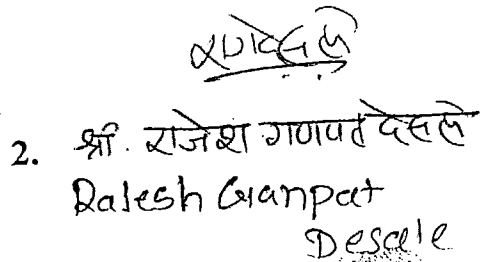 रागदेसले
2. श्री. राजेश गणपत देसले
Rajesh Ganpat
Desale